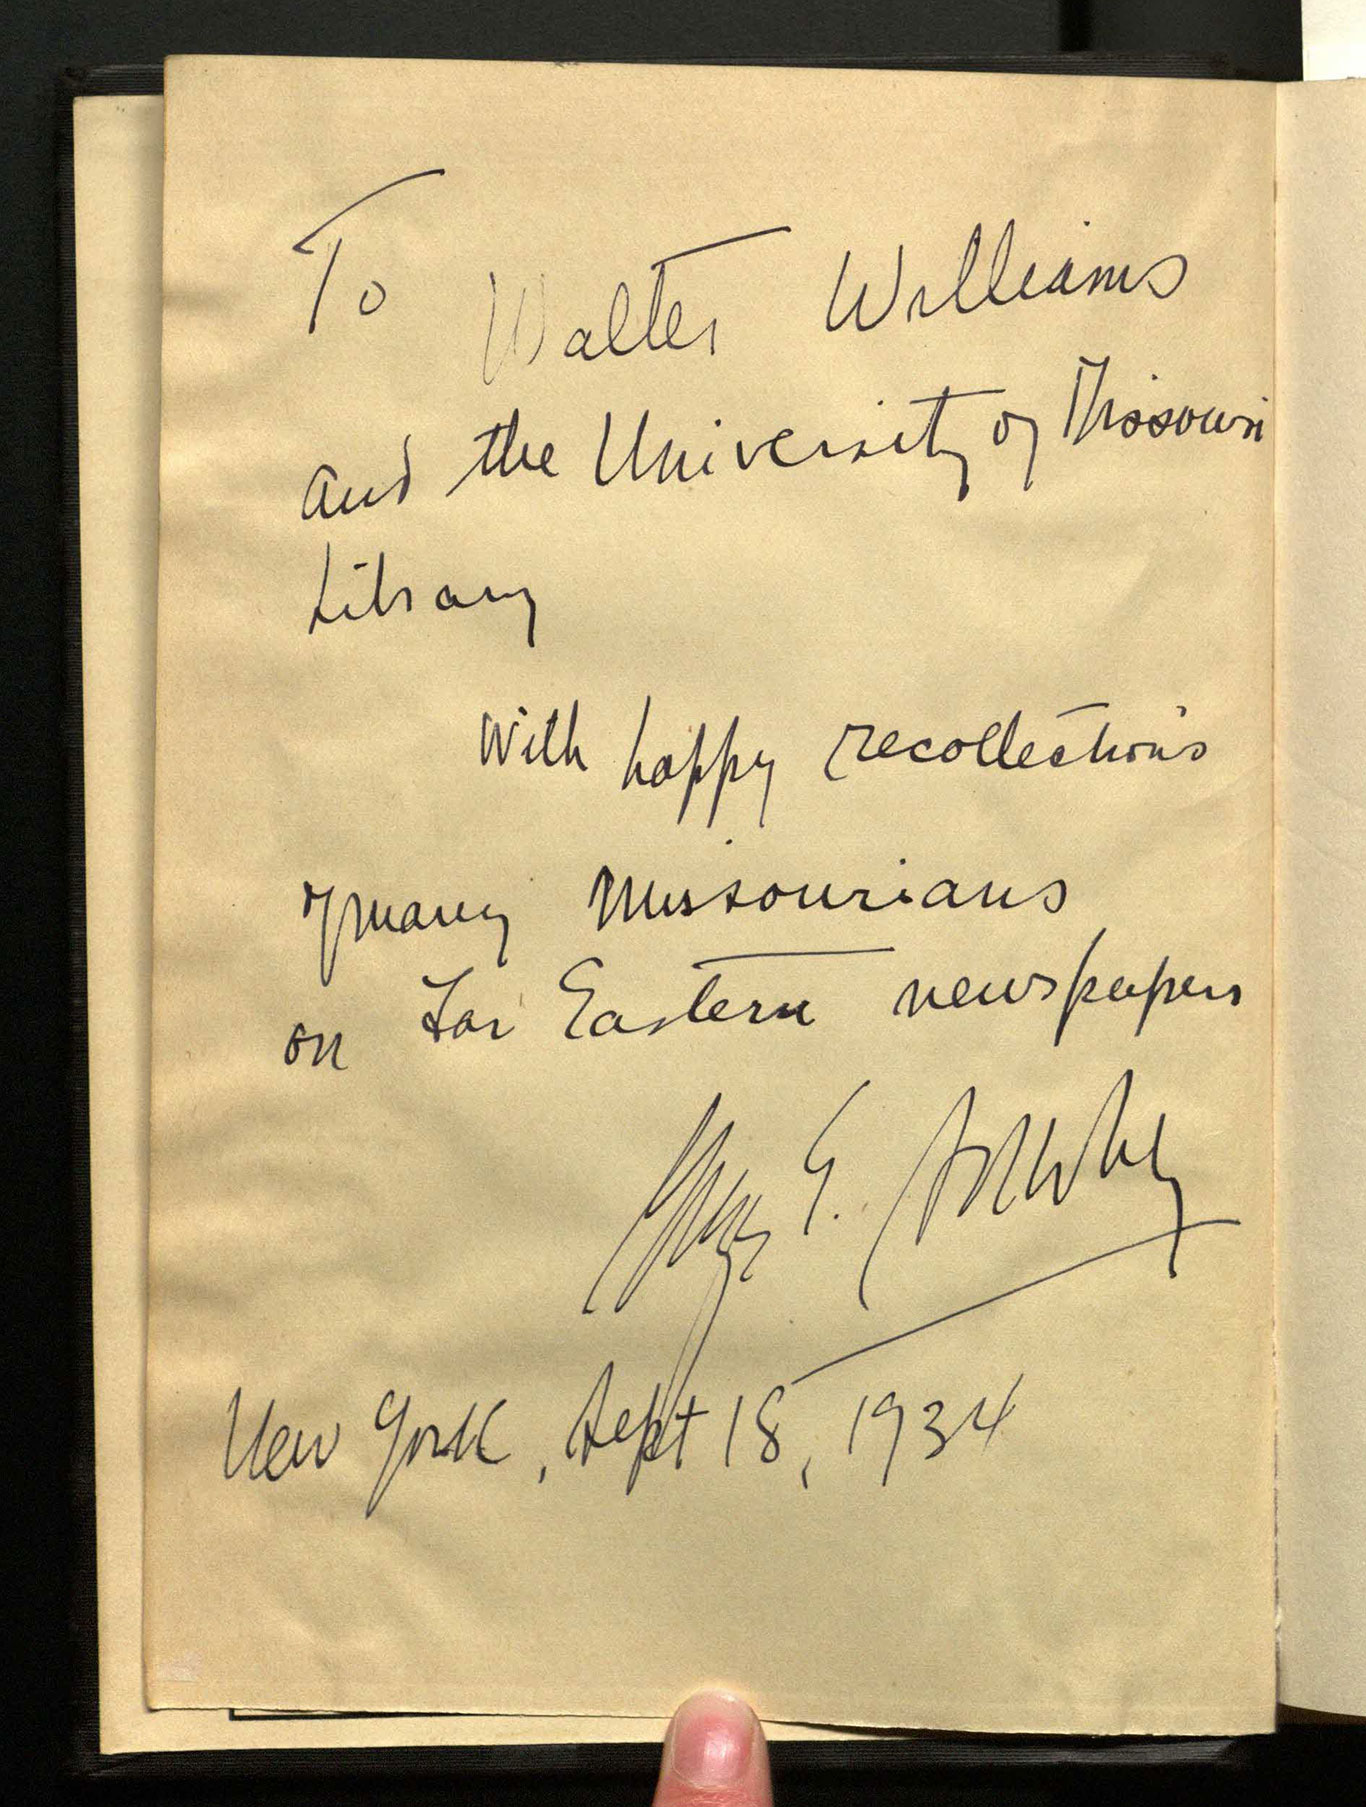 To Walter Williams
and the University of Missouri
Library
With happy recollections
of many Missourians
on Far Eastern newspapers
George E. Sokolsky
New York, Sept 18, 1934